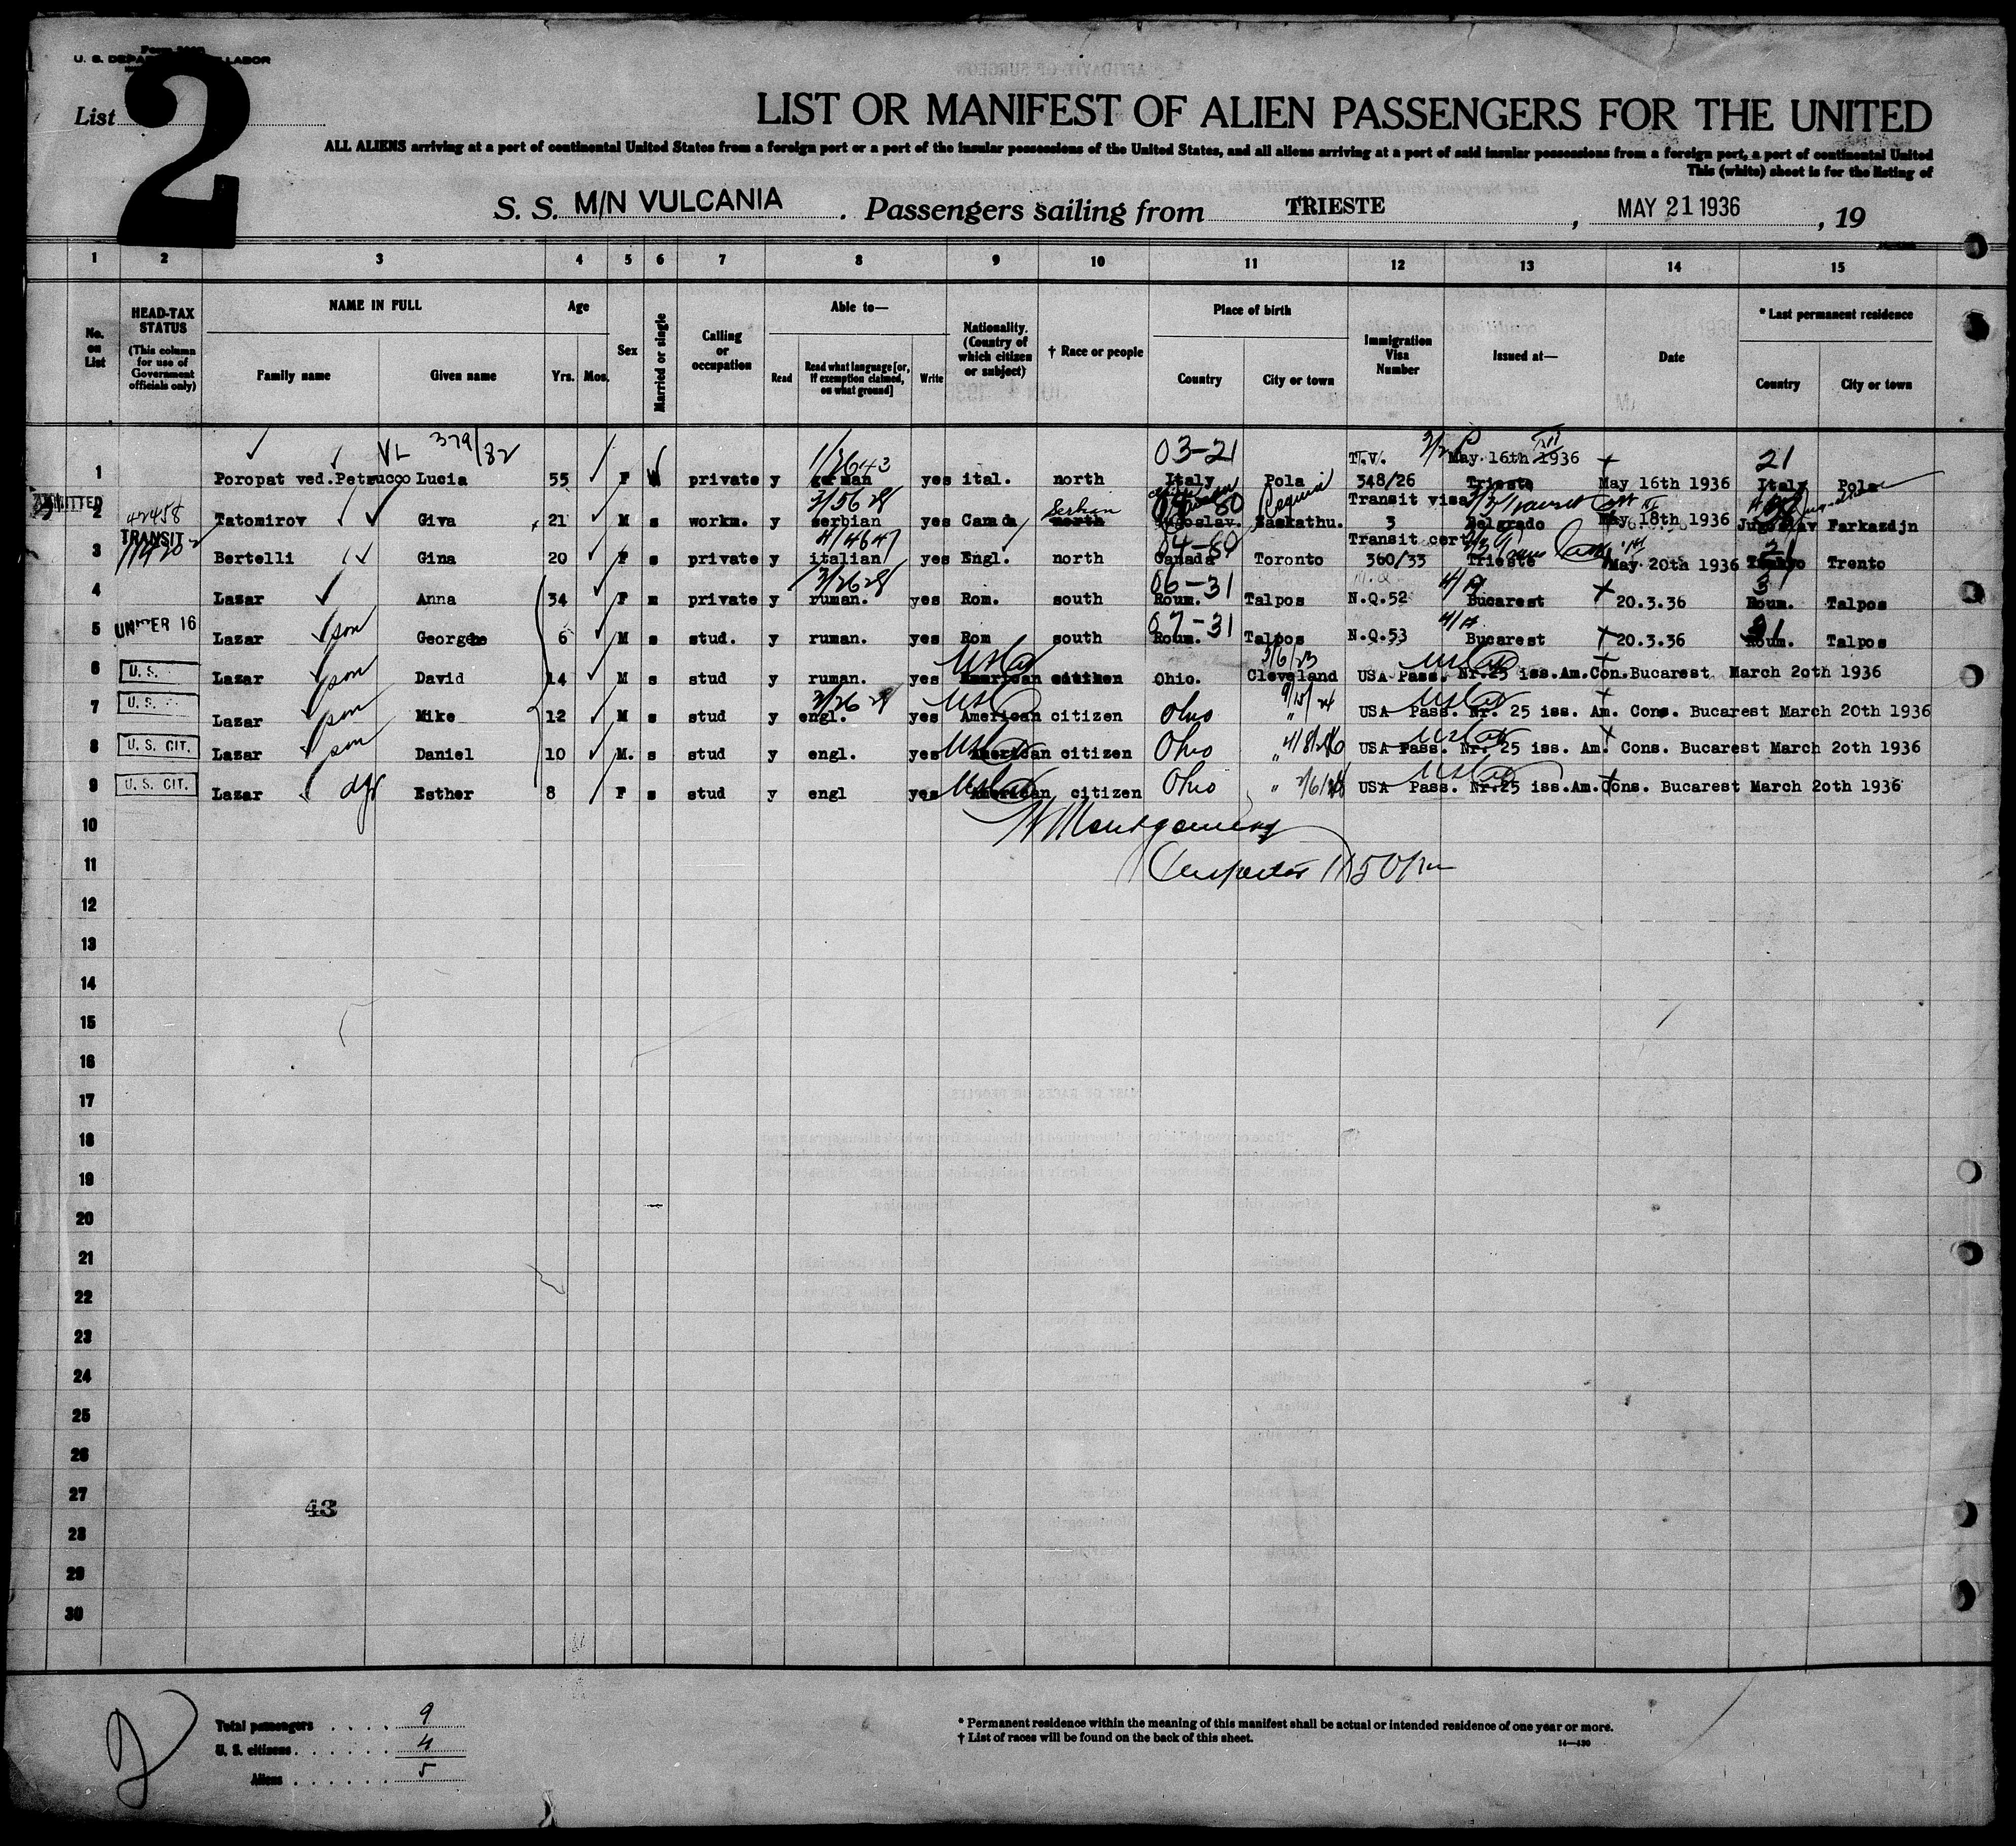 U. S. DEPA LABOR
List 2
LIST OR MANIFEST OF ALIEN PASSENGERS FOR THE UNITED
ALL ALIENS arriving at a port of continental United States from a foreign port or a port of the insular possessions of the United States, and all aliens arriving at a port of said insular possessions from a foreign port, a port of continental United
This (white) sheet is for the listing of
S. S. M/N VULCANIA . Passengers sailing from TRIESTE , MAY 21 1936 , 19
1 2 3 4 5 6 7 8 9 10 11 12 13 14 15
No. on List
HEAD-TAX STATUS (This column for use of Government officials only)
NAME IN FULL
Family name Given name
Age
Yrs. Mos.
Sex
Married or single
Calling or occupation
Able to—
Read Read what language [or, if exemption claimed, on what ground] Write
Nationality. (Country of which citizen or subject)
† Race or people
Place of birth
Country City or town
Immigration Visa Number
Issued at—
Date
* Last permanent residence
Country City or town
VL 379/82 03-21 T.V. May 16th 1936 21
1 Poropat ved.Petrucco Lucia 55 F W private y german yes ital. north Italy Pola 348/26 Trieste May 16th 1936 Italy Pola
ADMITTED 42458 3/56 28 Serbian Transit visa
2 Tatomirov Giva 21 M s workm. y serbian yes Canada north Jugoslav. Saskathu. 3 Belgrado May 18th 1936 Jugoslav Farkazdjn
TRANSIT 04-80 Transit cert.
3 Bertelli Gina 20 F s private y italian yes Engl. north Canada Toronto 360/33 Trieste May 20th 1936 Trento
3/26 28 06-31 3
4 Lazar Anna 34 F m private y ruman. yes Rom. south Roum. Talpos N.Q.52 Bucarest 20.3.36 Roum. Talpos
UNDER 16 07-31
5 Lazar son George 6 M s stud. y ruman. yes Rom south Roum. Talpos N.Q.53 Bucarest 20.3.36 Roum. Talpos
6 U. S. Lazar son David 14 M s stud y ruman. yes American citizen Ohio. Cleveland USA Pass. Nr.25 iss.Am.Con.Bucarest March 2oth 1936
7 U. S. Lazar son Mike 12 M s stud y engl. yes American citizen Ohio " USA Pass. Nr. 25 iss. Am. Cons. Bucarest March 20th 1936
8 U. S. CIT. Lazar son Daniel 10 M. s stud y engl. yes American citizen Ohio " USA Pass. Nr. 25 iss. Am. Cons. Bucarest March 2oth 1936
9 U. S. CIT. Lazar Esther 8 F s stud y engl yes American citizen Ohio " USA Pass. Nr.25 iss.Am.Cons. Bucarest March 2oth 1936
10 Montgomery
11
12
13
14
15
16
17
18
19
20
21
22
23
24
25
26
27 43
28
29
30
2
Total passengers . . . . 9
U. S. citizens . . . . . . 4
Aliens . . . . . . 5
* Permanent residence within the meaning of this manifest shall be actual or intended residence of one year or more.
† List of races will be found on the back of this sheet.